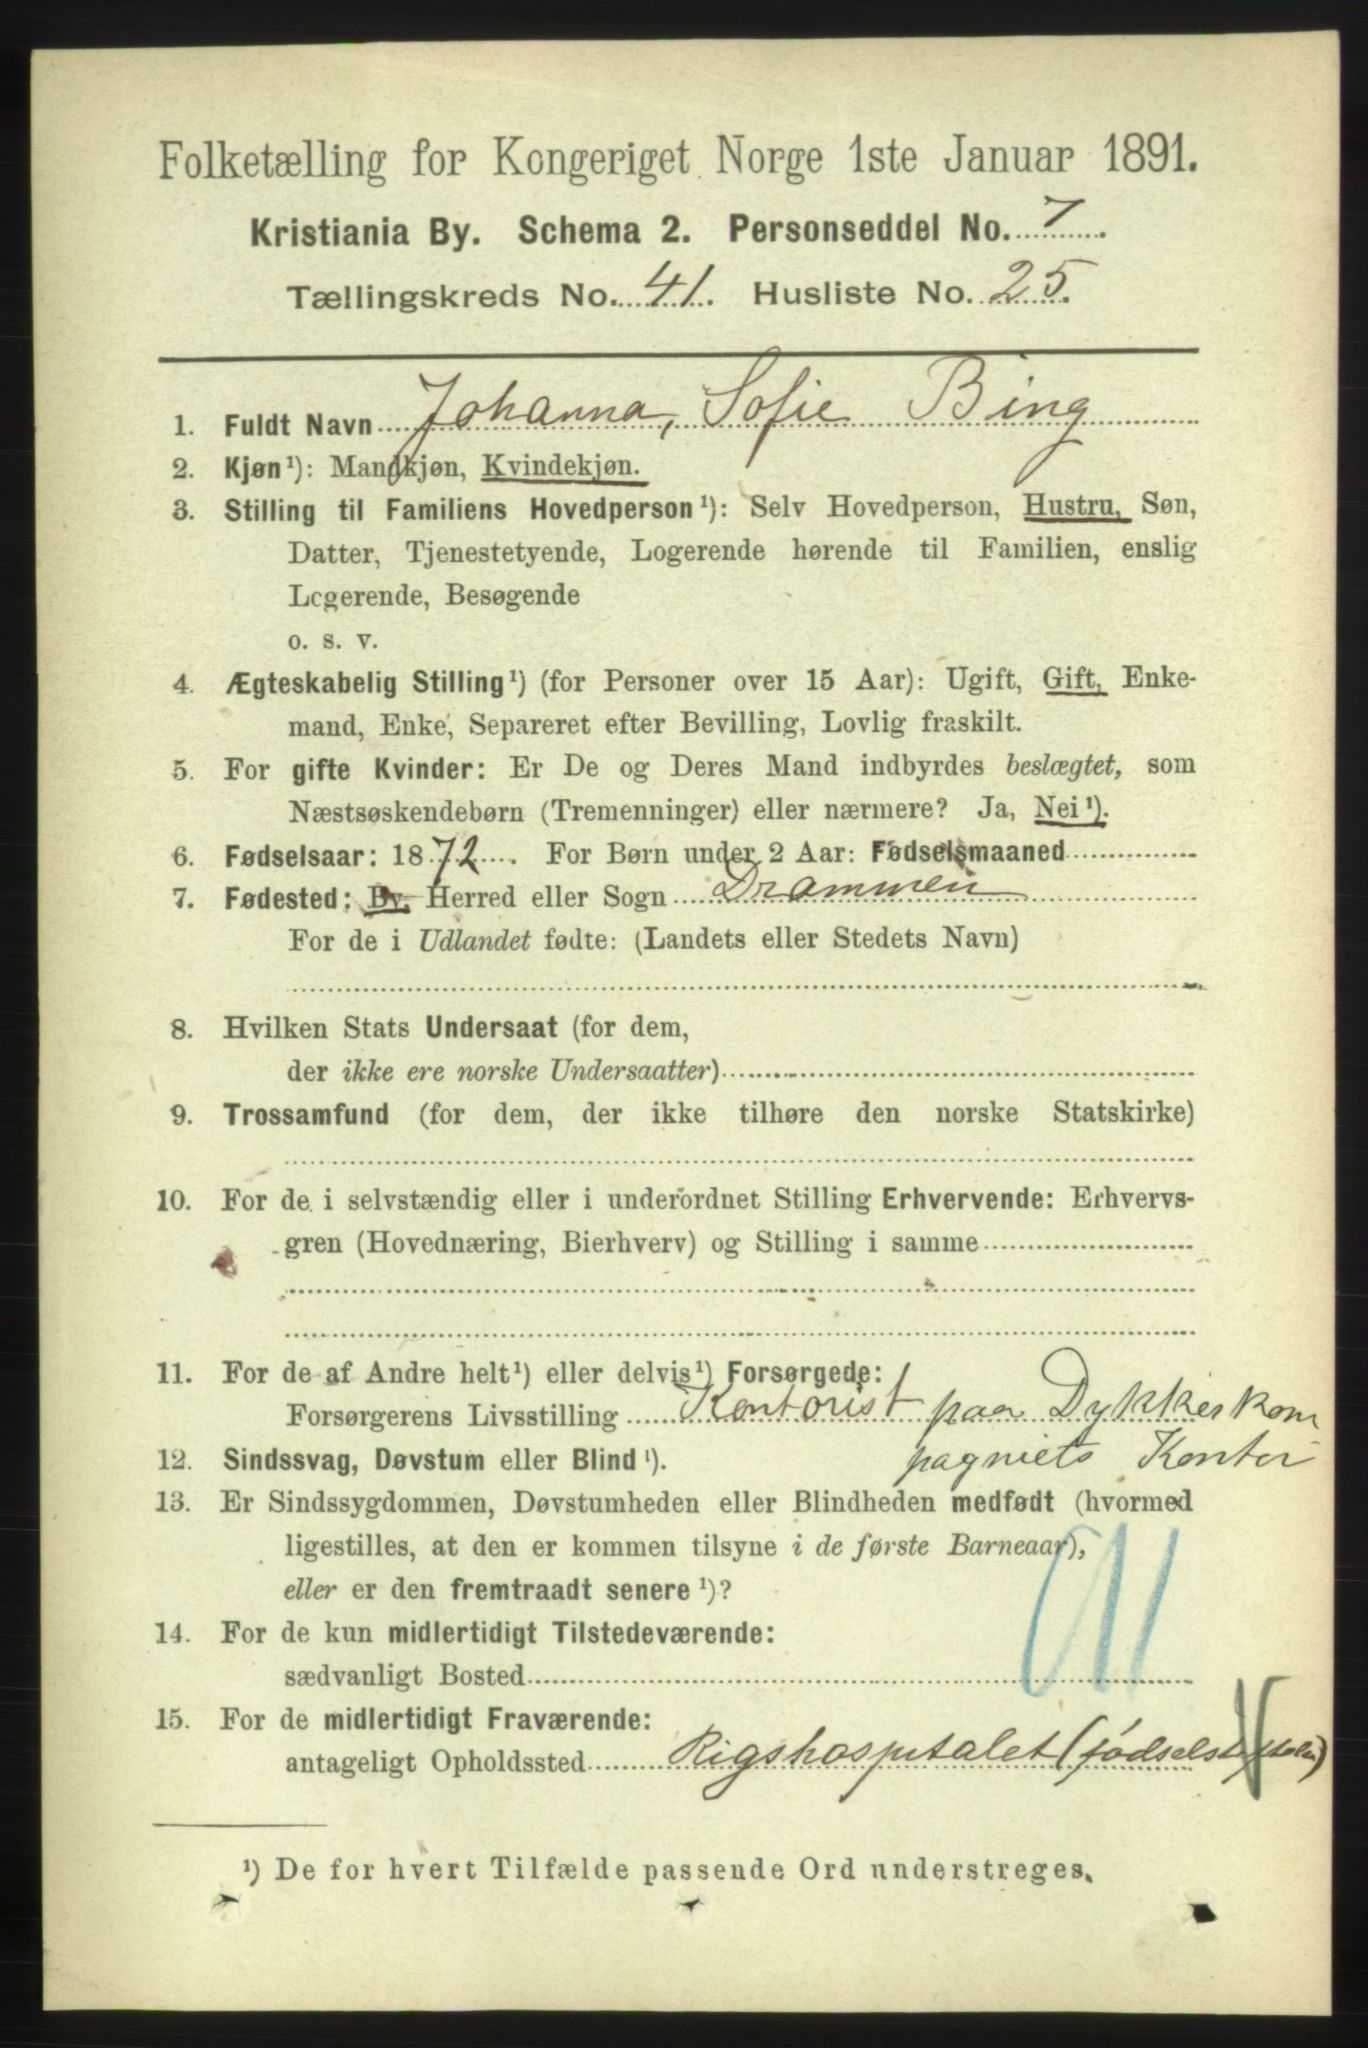 Folketælling for Kongeriget Norge 1ste Januar 1891.
Kristiania By. Schema 2. Personseddel No. 7.
Tællingskreds No. 41. Husliste No. 25.
1. Fuldt Navn Johanna, Sofie Bing
2. Kjøn¹): Mandkjøn, Kvindekjøn.
3. Stilling til Familiens Hovedperson¹): Selv Hovedperson, Hustru, Søn,
Datter, Tjenestetyende, Logerende hørende til Familien, enslig
Logerende, Besøgende
o. s. v.
4. Ægteskabelig Stilling¹) (for Personer over 15 Aar): Ugift, Gift, Enke-
mand, Enke, Separeret efter Bevilling, Lovlig fraskilt.
5. For gifte Kvinder: Er De og Deres Mand indbyrdes beslægtet, som
Næstsøskendebørn (Tremenninger) eller nærmere? Ja, Nei¹).
6. Fødselsaar: 1872. For Børn under 2 Aar: Fødselsmaaned
7. Fødested: By, Herred eller Sogn Drammen
For de i Udlandet fødte: (Landets eller Stedets Navn)
8. Hvilken Stats Undersaat (for dem,
der ikke ere norske Undersaatter)
9. Trossamfund (for dem, der ikke tilhøre den norske Statskirke)
10. For de i selvstændig eller i underordnet Stilling Erhvervende: Erhvervs-
gren (Hovednæring, Bierhverv) og Stilling i samme
11. For de af Andre helt¹) eller delvis¹) Forsørgede:
Forsørgerens Livsstilling Kontorist paa Dykkerkom
pagniets Kontor
12. Sindssvag, Døvstum eller Blind¹).
13. Er Sindssygdommen, Døvstumheden eller Blindheden medfødt (hvormed
ligestilles, at den er kommen tilsyne i de første Barneaar),
eller er den fremtraadt senere¹)?
14. For de kun midlertidigt Tilstedeværende:
sædvanligt Bosted
15. For de midlertidigt Fraværende:
antageligt Opholdssted Rigshospitalet
¹) De for hvert Tilfælde passende Ord understreges.